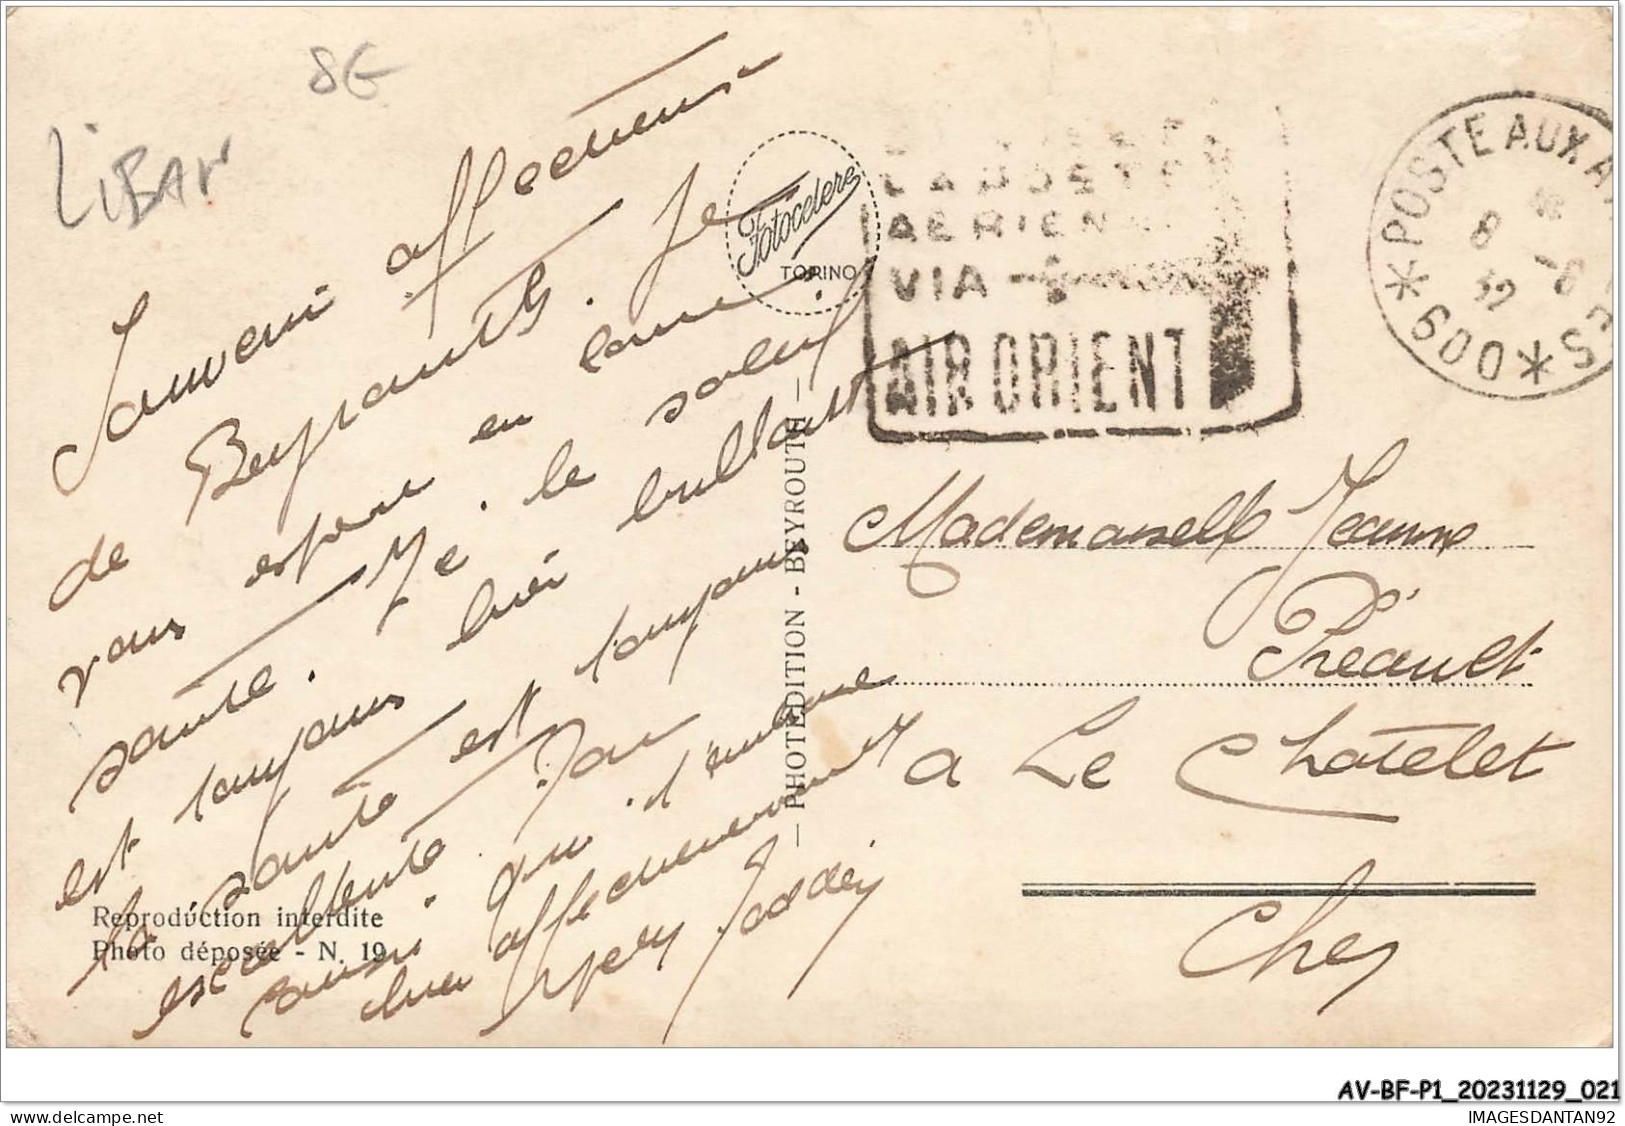 8E
LiBAN
Souvenir affectueux
de Beyrouth. Je
vous espère en bonne
santé. Ici le soleil
est toujours bien brillant
la santé est toujours
excellente. Pour
aussi. qui
bien affectueusement
Fotocelere
TORINO
AERIENNE
VIA
AIR ORIENT
* POSTE AUX A
8 -6
32
* 600 *
— PHOTEDITION - BEYROUTH —
Mademoiselle Jeanne
Préault
a Le Chatelet
Cher
Reproduction interdite
Photo déposée - N. 19
AV-BF-P1_20231129_021
www.delcampe.net
IMAGESDANTAN92